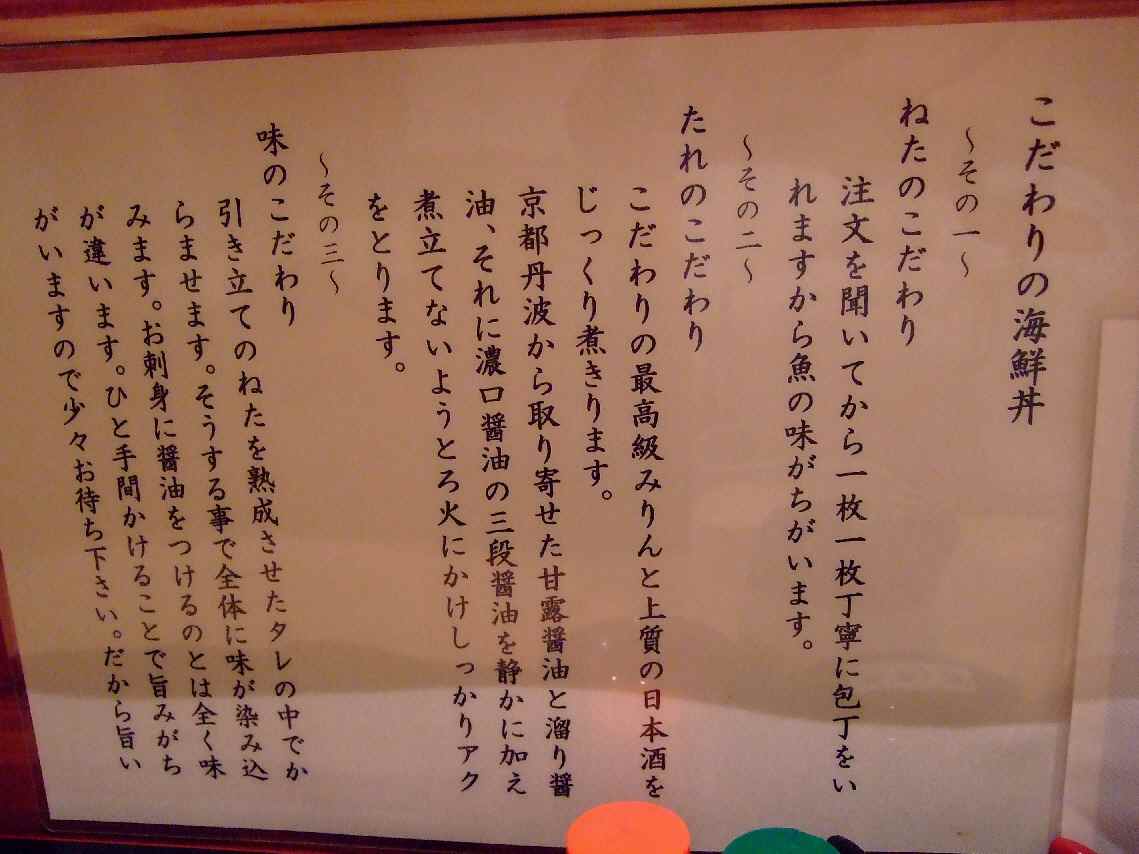 こだわりの海鮮丼
～その一～
ねたのこだわり
注文を聞いてから一枚一枚丁寧に包丁をい
れますから魚の味がちがいます。
～その二～
たれのこだわり
こだわりの最高級みりんと上質の日本酒を
じっくり煮きります。
京都丹波から取り寄せた甘露醤油と溜り醤
油、それに濃口醤油の三段醤油を静かに加え
煮立てないようとろ火にかけしっかりアク
をとります。
～その三～
味のこだわり
引き立てのねたを熟成させたタレの中でか
らませます。そうする事で全体に味が染み込
みます。お刺身に醤油をつけるのとは全く味
が違います。ひと手間かけることで旨みがち
がいますので少々お待ち下さい。だから旨い